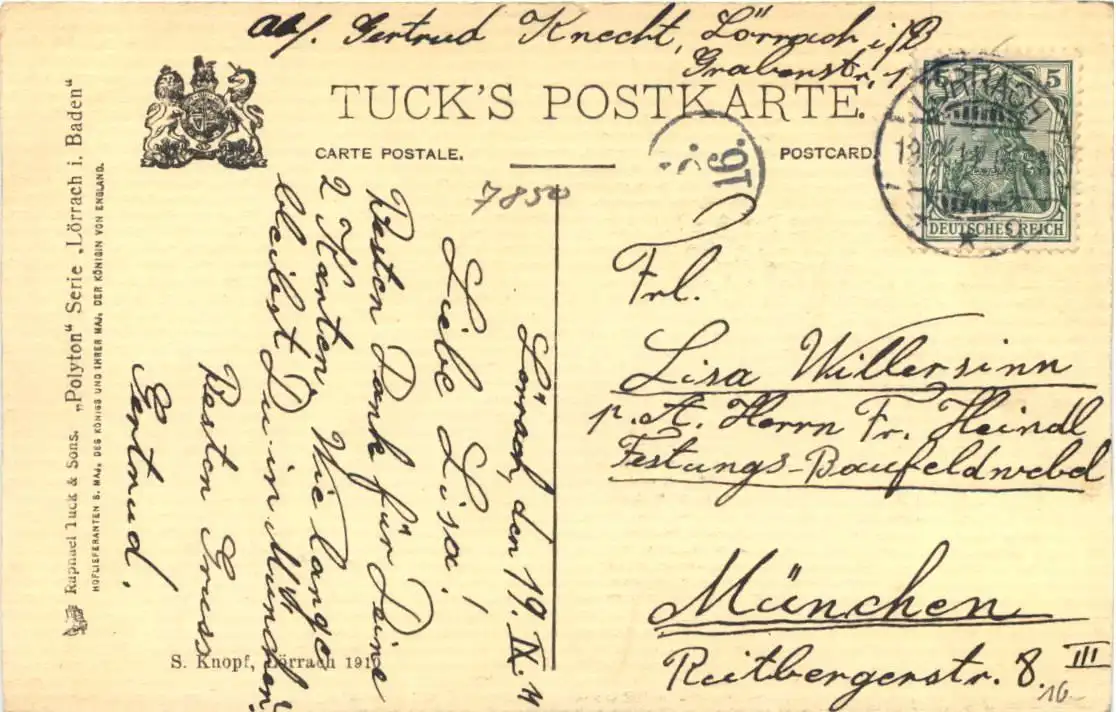 Abs. Gertrud Knecht, Lörrach i/B
Grabenstr. 1
TUCK'S POSTKARTE.
CARTE POSTALE.
POSTCARD.
16.
5 5
LÖRRACH
DEUTSCHES REICH
7850
Lörrach, den 19. IX. 11
Liebe Lisa!
Besten Dank für Deine
2 Karten. Wie lange
bleibst Du in München?
Besten Gruss
Gertrud.
Frl.
Lisa Willersinn
p. A. Herrn Fr. Heindl
Festungs-Baufeldwebel
München
Reitbergerstr. 8. III
16
Raphael Tuck & Sons. „Polyton" Serie „Lörrach i. Baden"
HOFLIEFERANTEN S. MAJ. DES KÖNIGS UND IHRER MAJ. DER KÖNIGIN VON ENGLAND.
S. Knopf, Lörrach 1910